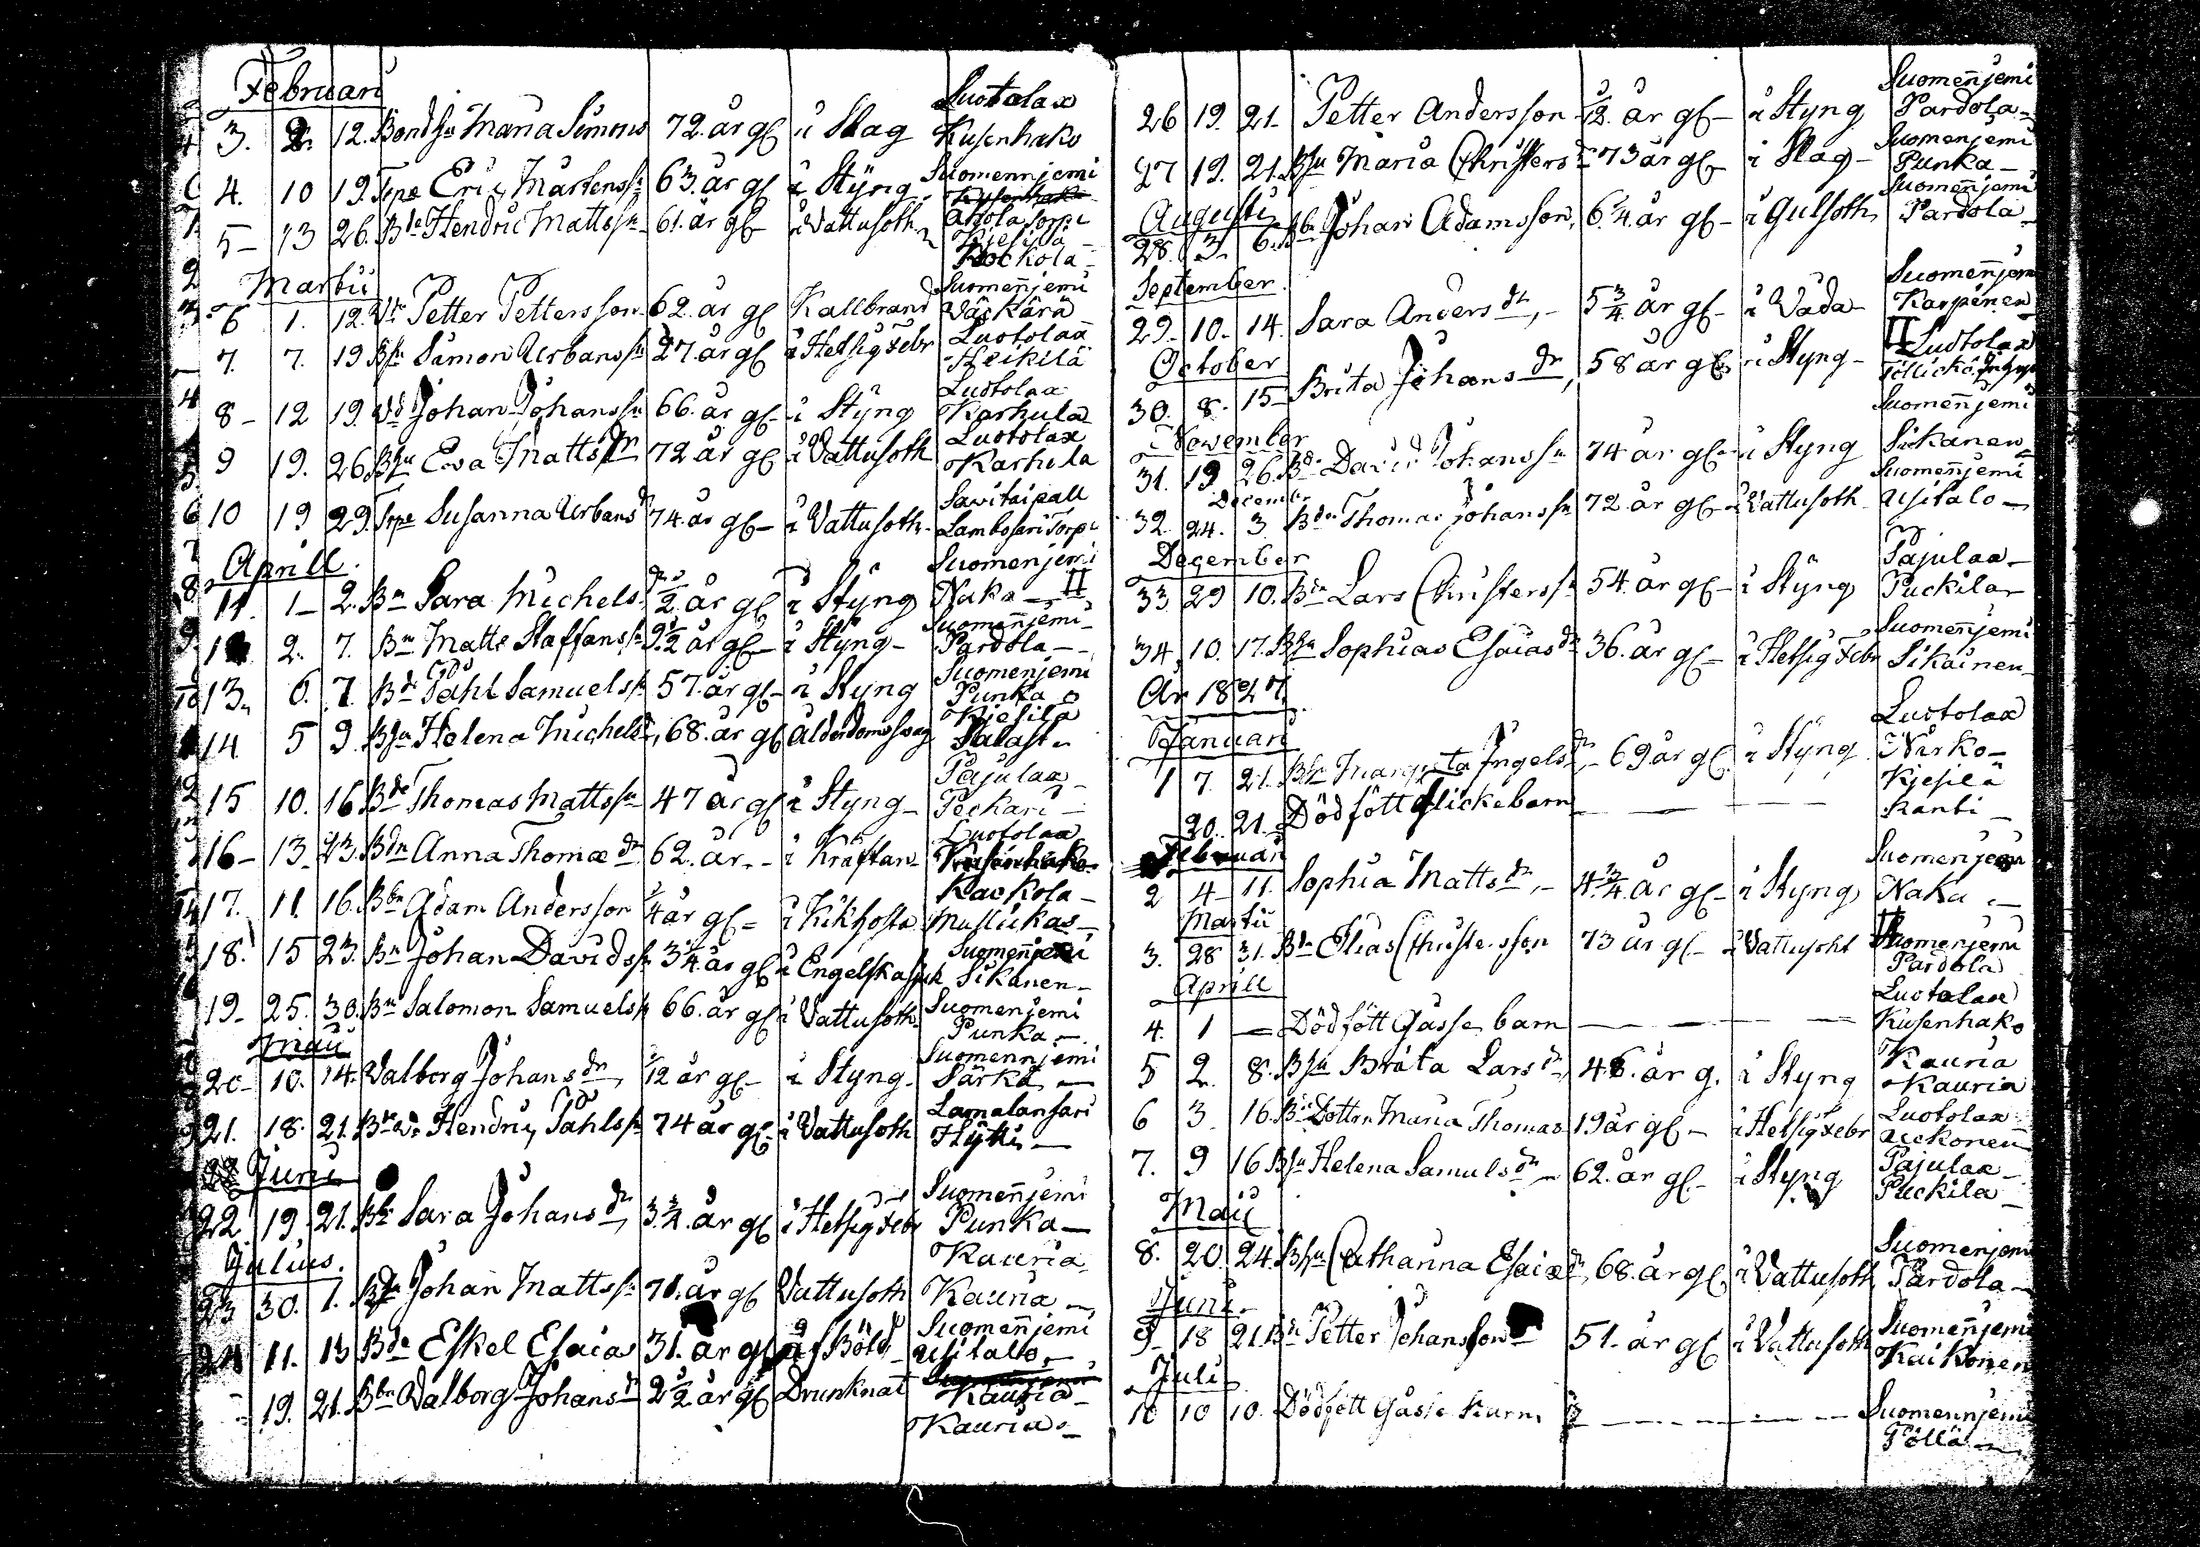 Februari
Luotolax
3. 2. 12. Bondhu Maria Simons 72. år gl i Slag Kusenhako
Suomennjemi
4. 10 19. Trpe Eric Mårtenss: 63. år gl i Styng
5- 13 26. Bde Hendric Mattss: 61. år gl- i Vattusoth
Kjesilä
Kockola-
Martii
Suomenjemi
6 1. 12. Petter Pettersson 62. år gl Kallbrand Väskärä
Luotolax
7. 7. 19 Simon Urbanss: 27. år gl i Hetsig Febr Heikilä
Luotolax
8- 12 19. Johan Johanss: 66. år gl- i Styng Karhula
Luotolax
9 19. 26 Bhu Eva Matts dr 72 år gl i Vattusoth Karhula
Savitaipall
10 19 29. Trpe Susanna Urbans dr 74. år gl- i Vattusoth- Lambosari Torp
Aprill.
Suomenjemi
11. 1- 2. Bn Sara Michels dr 1/2 år gl i Styng Naka - II
Suomenjemi
2. 7. Bn Matts Staffanss: 9 1/2 år gl- i Styng- Pardola-
Suomenjemi
13. 6. 7. Bde Påhl Samuelss: 57. år gl- i Styng Punka
Kjesilä
14 5 9. Bhu Helena Michels dr, 68. år gl Ålderdomswag
Pajulax
15 10. 16 Bde Thomas Mattss: 47 år gl i Styng- Peckari
Luotolax
16- 13. 23. Bdn Anna Thomæ dr 62. år - i Kräftan-
Kackola-
17. 11. 16. Bbn Adam Andersson 1/4 år gl- i Kikhosta Mustickas-
Suomenjemi
18. 15 23. Bn Johan Davidss: 3 1/4 år gl i Engelska sjuk Sikanen-
Suomenjemi
19- 25. 30. Bn Salomon Samuelss: 66. år gl i Vattusoth Punka-
Maii
Suomennjemi
20- 10. 14. Valborg Johans dr, 1/12 år gl- i Styng- Särkä -
Lamalansari
21. 18. 21. Hendric Påhlss: 74 år gl- i Vattusoth Hytti-
Juni
Suomenjemi
22. 19. 21. Sara Johans dr, 3 3/4. år gl i Hetsig Febr Punka-
Julius.
Kauria
23 30. 1. Johan Mattss: 71. år gl Vattusoth Kauria-
Suomenjemi
24 11. 13 Bde Eskel Esaias 31. år gl Usitallo-
- 19. 21. Bbn Valborg Johans dr 2 1/2 år gl Drunknat Kauria-
Kauria-
Suomenjemi
26 19. 21. Petter Andersson 1/2. år gl- i Styng Pardola-
Suomenjemi
27 19. 21. Bhu Maria Christers dr 73 år gl- i Slag- Punka-
Augusti
Suomenjemi
28. 3. 6. Johan Adamsson, 6 1/4. år gl- i Gulsoth Pardola-
September.
Suomenjemi
29. 10. 14. Sara Anders dr, - 5 3/4 år gl- i Våda- Karpinen
October
II Luotolax
30. 8. 15 Brita Johans dr, 58 år gl i Styng-
Suomenjemi
November
31. 19 26. Bd David Johanss: 74 år gl- i Styng Sikanen
December
Suomenjemi
32. 24. 3 Bdn Thomas Johanss: 72. år gl- i Vattusoth Usitalo-
December
Pajulax-
33 29 10. Bdn Lars Christerss: 54. år gl- i Styng Puckila-
Suomenjemi
34. 10. 17. Bhu Sophias Esaias dr 36. år gl- i Hetsig Febr Sikainen
År 1827.
Januari
Luotolax
1 7. 21. Bhu Margreta Ingels dr - 69 år gl i Styng Nirko-
Kjesilä
20. 21. Dödfött flickebarn - - - Ranti-
Februari
Suomenjemi
2 4- 11. Sophia Matts dr, - 4 3/4. år gl- i Styng Naka - II
Martii
Suomenjemi
3. 28 31. Bdn Elias Christersson 73 år gl- i Vattusoht Pardola
Aprill
Luotolax
4. 1 - Dödfött Gåsse barn - - - Kusenhako
Kauria
5 2. 8. Bhu Brita Lars dr, 46. år g. i Styng Kauria
Luotolax
6 3. 16. Bde Dotter Maria Thomas 19 år gl- i Hetsig Febr Uckonen
Pajulax-
7. 9 16 Bhu Helena Samuls dr - 62. år gl- i Styng Puckila-
Maii
Suomenjemi
8. 20. 24. Bhu Catharina Esaiæ dr, 68. år gl, i Vattusoth Pardola-
Juni-
Suomenjemi
9- 18 21. Bdn Petter Johansson 51. år gl i Vattusoth Kaikonen
Juli
10 10 10. Dödfött Gåsse barn - - - Suomennjemi
Pöllä-